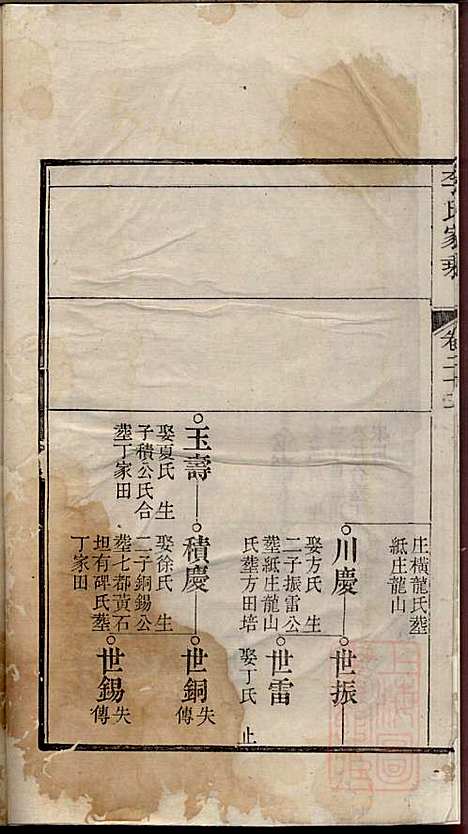 李氏家乘
卷二十三
庄橫龍氏塟
紙庄龍山
川慶
娶方氏 生
二子振雷公
塟紙庄龍山
氏塟方田培
世振
世雷
娶丁氏 止
玉壽
娶夏氏 生
子積公氏合
塟丁家田
積慶
娶徐氏 生
二子銅錫公
塟七都黃石
坦有碑氏塟
丁家田
世銅
失傳
世錫
失傳